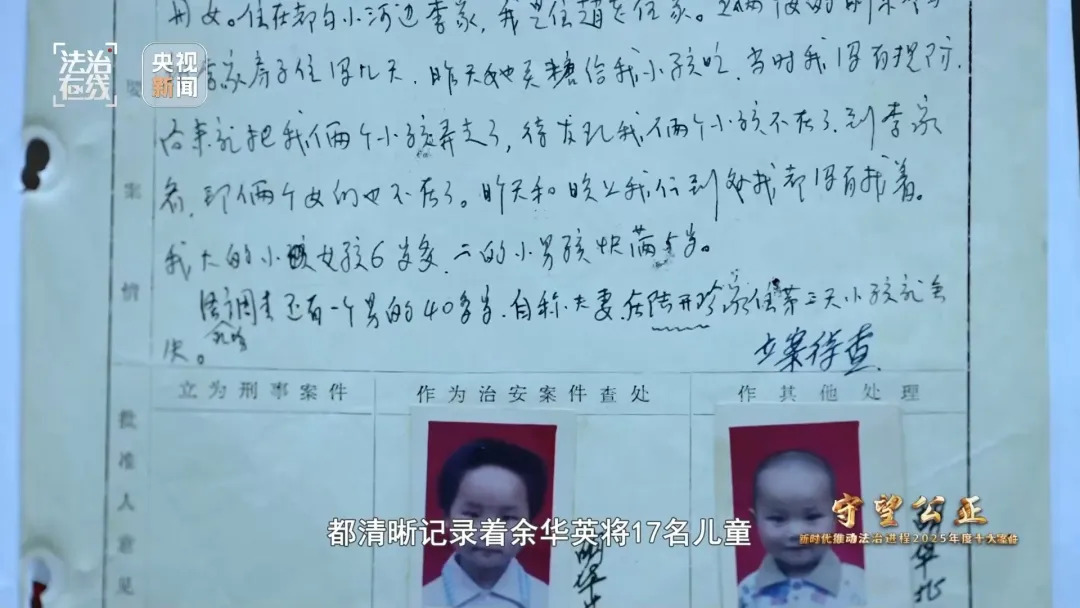 用女。住在都匀小河边李家,我是住赵老伍家。
李家房子住得几天,昨天她买糖给我小孩吃,当时我没有提防,
后来就把我们两个小孩弄走了,待发现我们两个小孩不在了,到李家
看,那俩个女的也不在了。昨天和晚上我们到处找都没有找着。
我大的小孩女孩6岁多,二的小男孩快满5岁。
还有一个男的40多岁,自称夫妻,在陆开珍家住第三天小孩就丢
失。
立案侦查
案
情
法治在线
央视新闻
立为刑事案件
作为治安案件查处
作其他处理
批准人意见
守望公正
新时代推动法治进程2025年度十大案件
都清晰记录着余华英将17名儿童